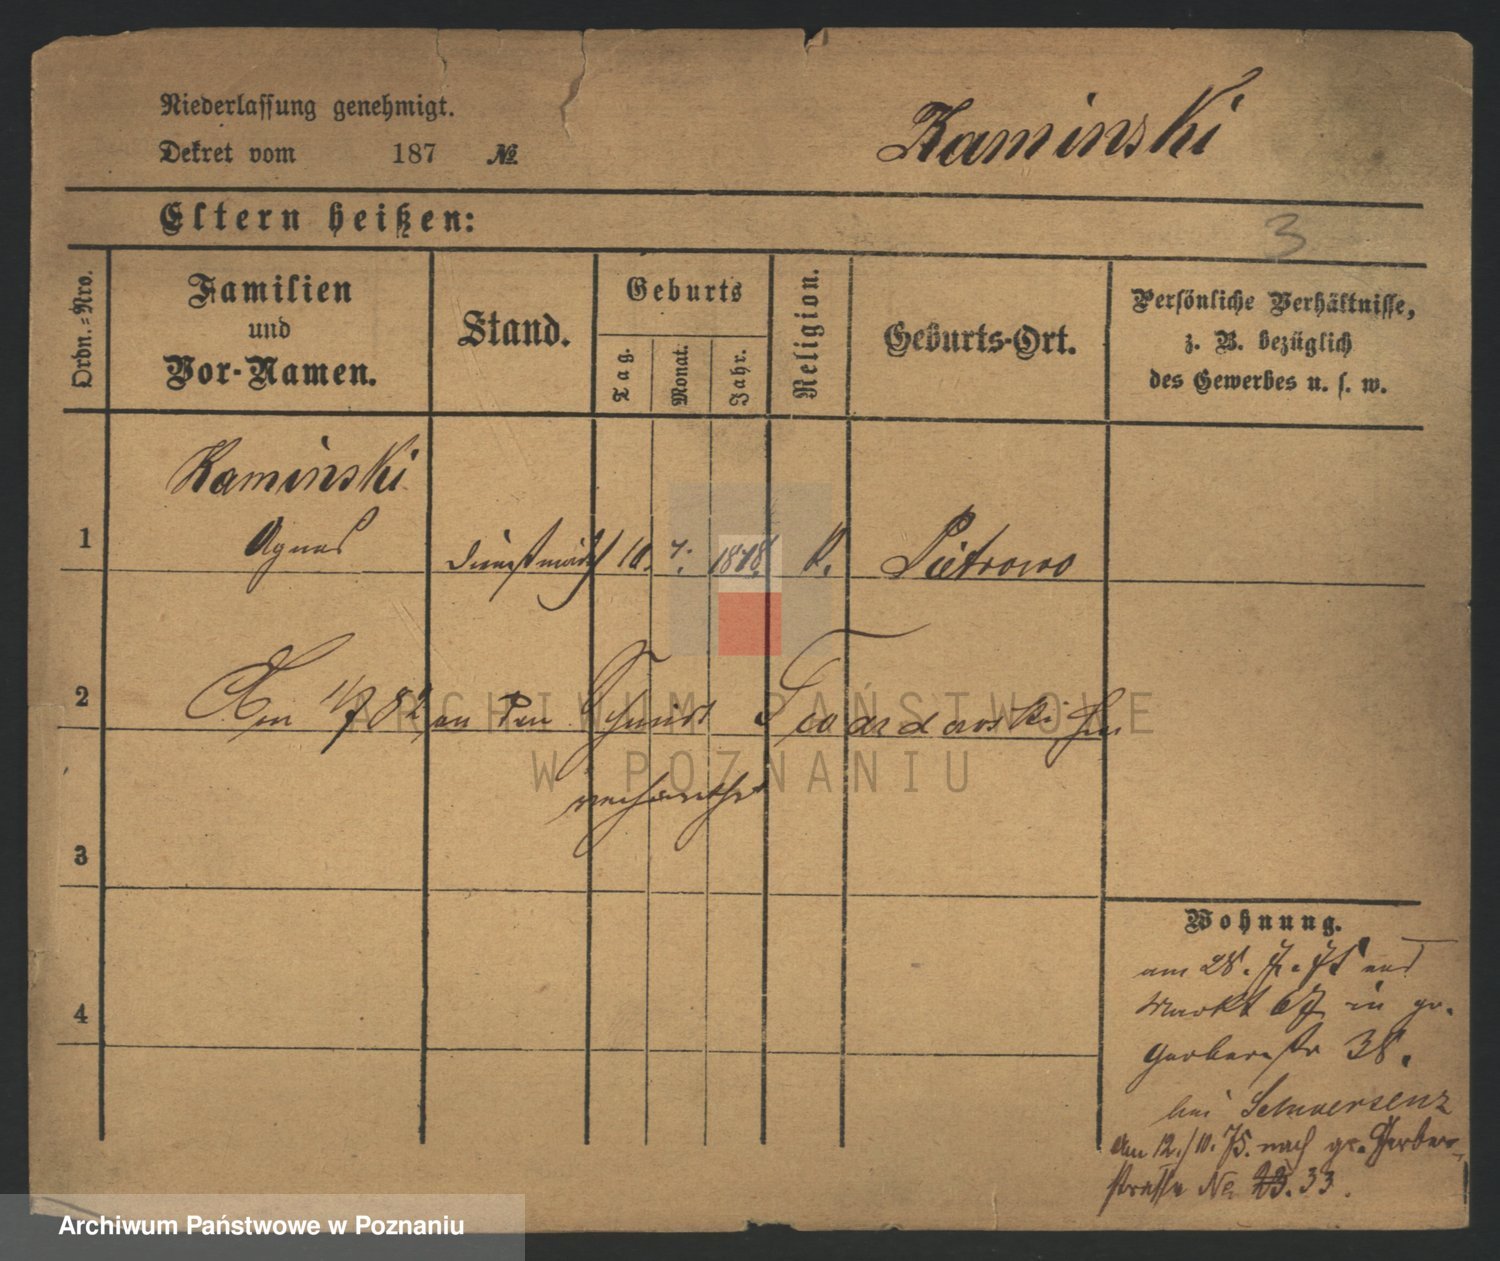 Niederlassung genehmigt.
Dekret vom 187 №
Kaminski
Eltern heißen:
3
Ordn.=Nro.
Familien
und
Vor-Namen.
Stand.
Geburts
Tag.
Monat.
Jahr.
Religion.
Geburts-Ort.
Persönliche Verhältnisse,
z. B. bezüglich
des Gewerbes u. s. w.
Kaminski
1 Agnes Dienstmädch 10. 7. K. Pietrowo
2 an den Schmidt Twardowski hier
verheirathet
3
4
Wohnung.
am 28. 7. 75 aus
Markt 67 in gr.
Gerberstr 38.
bei Schwersenz
Am 12./10. 75. nach gr. Gerber-
strasse No 33.
ARCHIWUM PAŃSTWOWE
W POZNANIU
Archiwum Państwowe w Poznaniu